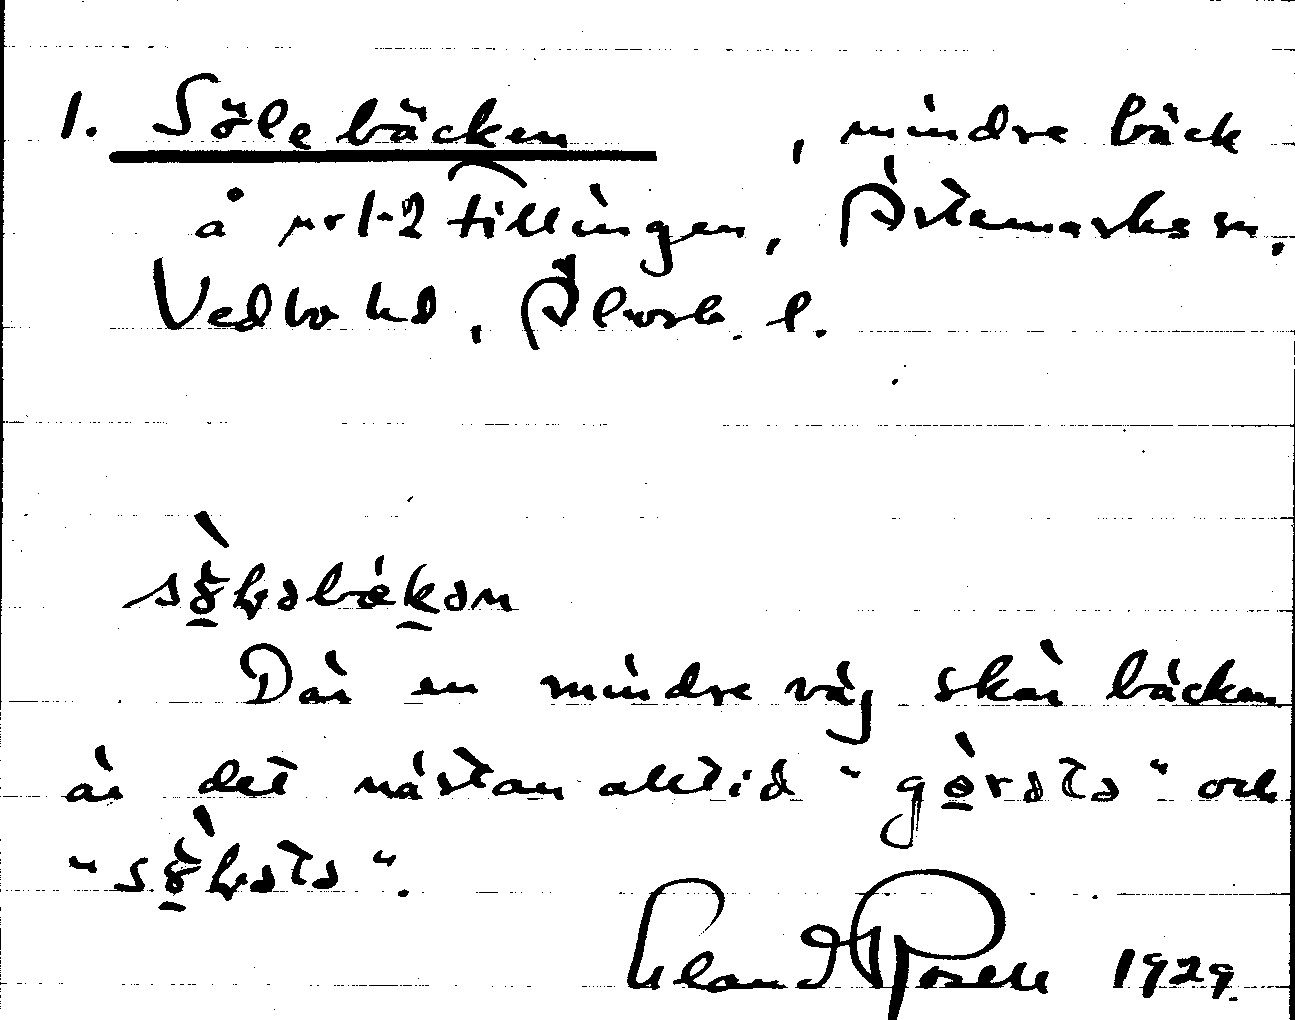 1. Sölebäcken, mindre bäck
å nr 1-2 Tillingen, Ärtemarks sn,
Vedbo hd, Älvsb. l.
Där en mindre väg skär bäcken
är det nästan alltid "gè̱rətə" och
Eland Rosell 1929.